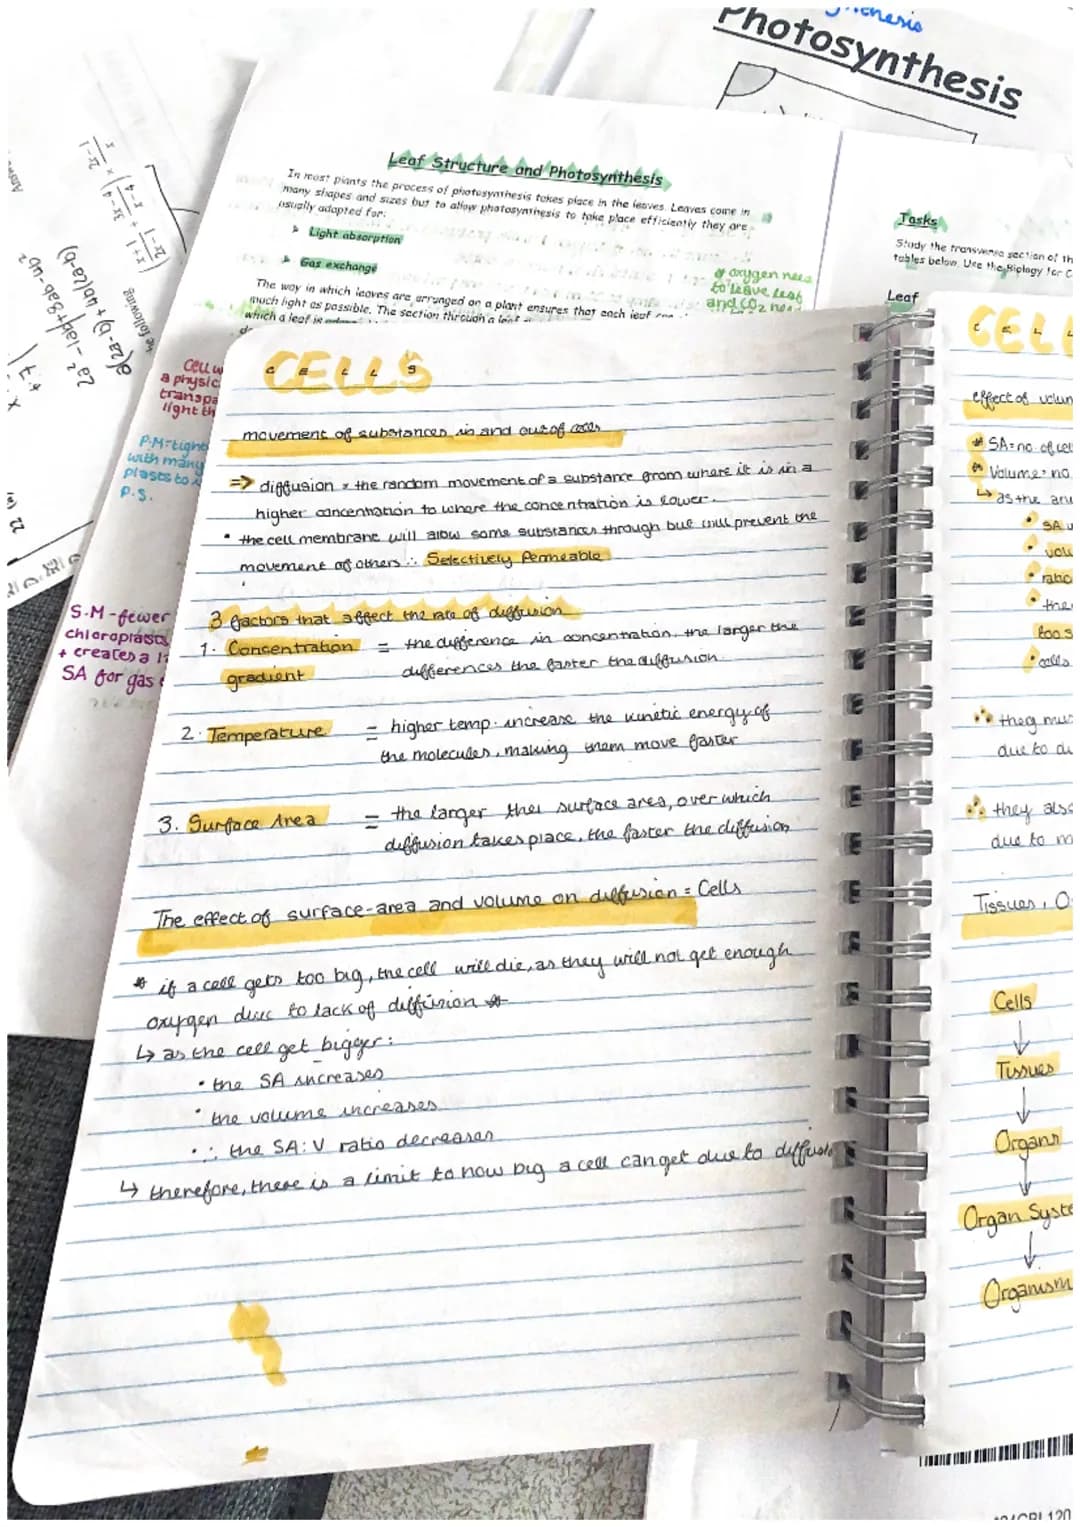 Photosynthesis
Leaf Structure and Photosynthesis
In most plants the process of photosynthesis takes place in the leaves. Leaves come in
many shapes and sizes but to allow photosynthesis to take place efficiently they are
usually adapted for:
➤ Light absorption
➤ Gas exchange
The way in which leaves are arranged on a plant ensures that each leaf
much light as possible. The section through a leaf
which a leaf is
oxygen needs
to leave leaf
and CO₂
Tasks
Study the transverse section of th
tables below. Use the Biology for C
Leaf
Cell w
a physic
transpa
light th
P.M = tight
with many
plasts to
P.S.
S.M - fewer
chloroplasts
+ creates a
SA for gas
CELLS
movement of substances in and out of cells
=> diffusion = the random movement of a substance from where it is in a
higher concentration to where the concentration is lower.
• the cell membrane will allow some substances through but will prevent the
movement of others ∴ Selectively Permeable
3 factors that affect the rate of diffusion
1. Concentration = the difference in concentration, the larger the
gradient differences the faster the diffusion.
2. Temperature = higher temp. increase the kinetic energy of
the molecules, making them move faster
3. Surface Area = the larger the surface area, over which
diffusion takes place, the faster the diffusion
The effect of surface-area and volume on diffusion = Cells
* if a cell gets too big, the cell will die, as they will not get enough
oxygen due to lack of diffusion *
↳ as the cell get bigger:
• the SA increases
• the volume increases
• ∴ the SA:V ratio decreases
↳ therefore, there is a limit to how big a cell can get due to diffusio
CELL
effect of volum
* SA = no. of cel
* Volume = no.
↳ as the
• SA
• volu
• ratio
• the
too s
• cells
∴ they mus
due to
∴ they also
due to m
Tissues, O
Cells
↓
Tissues
↓
Organs
↓
Organ Syste
↓
Organism